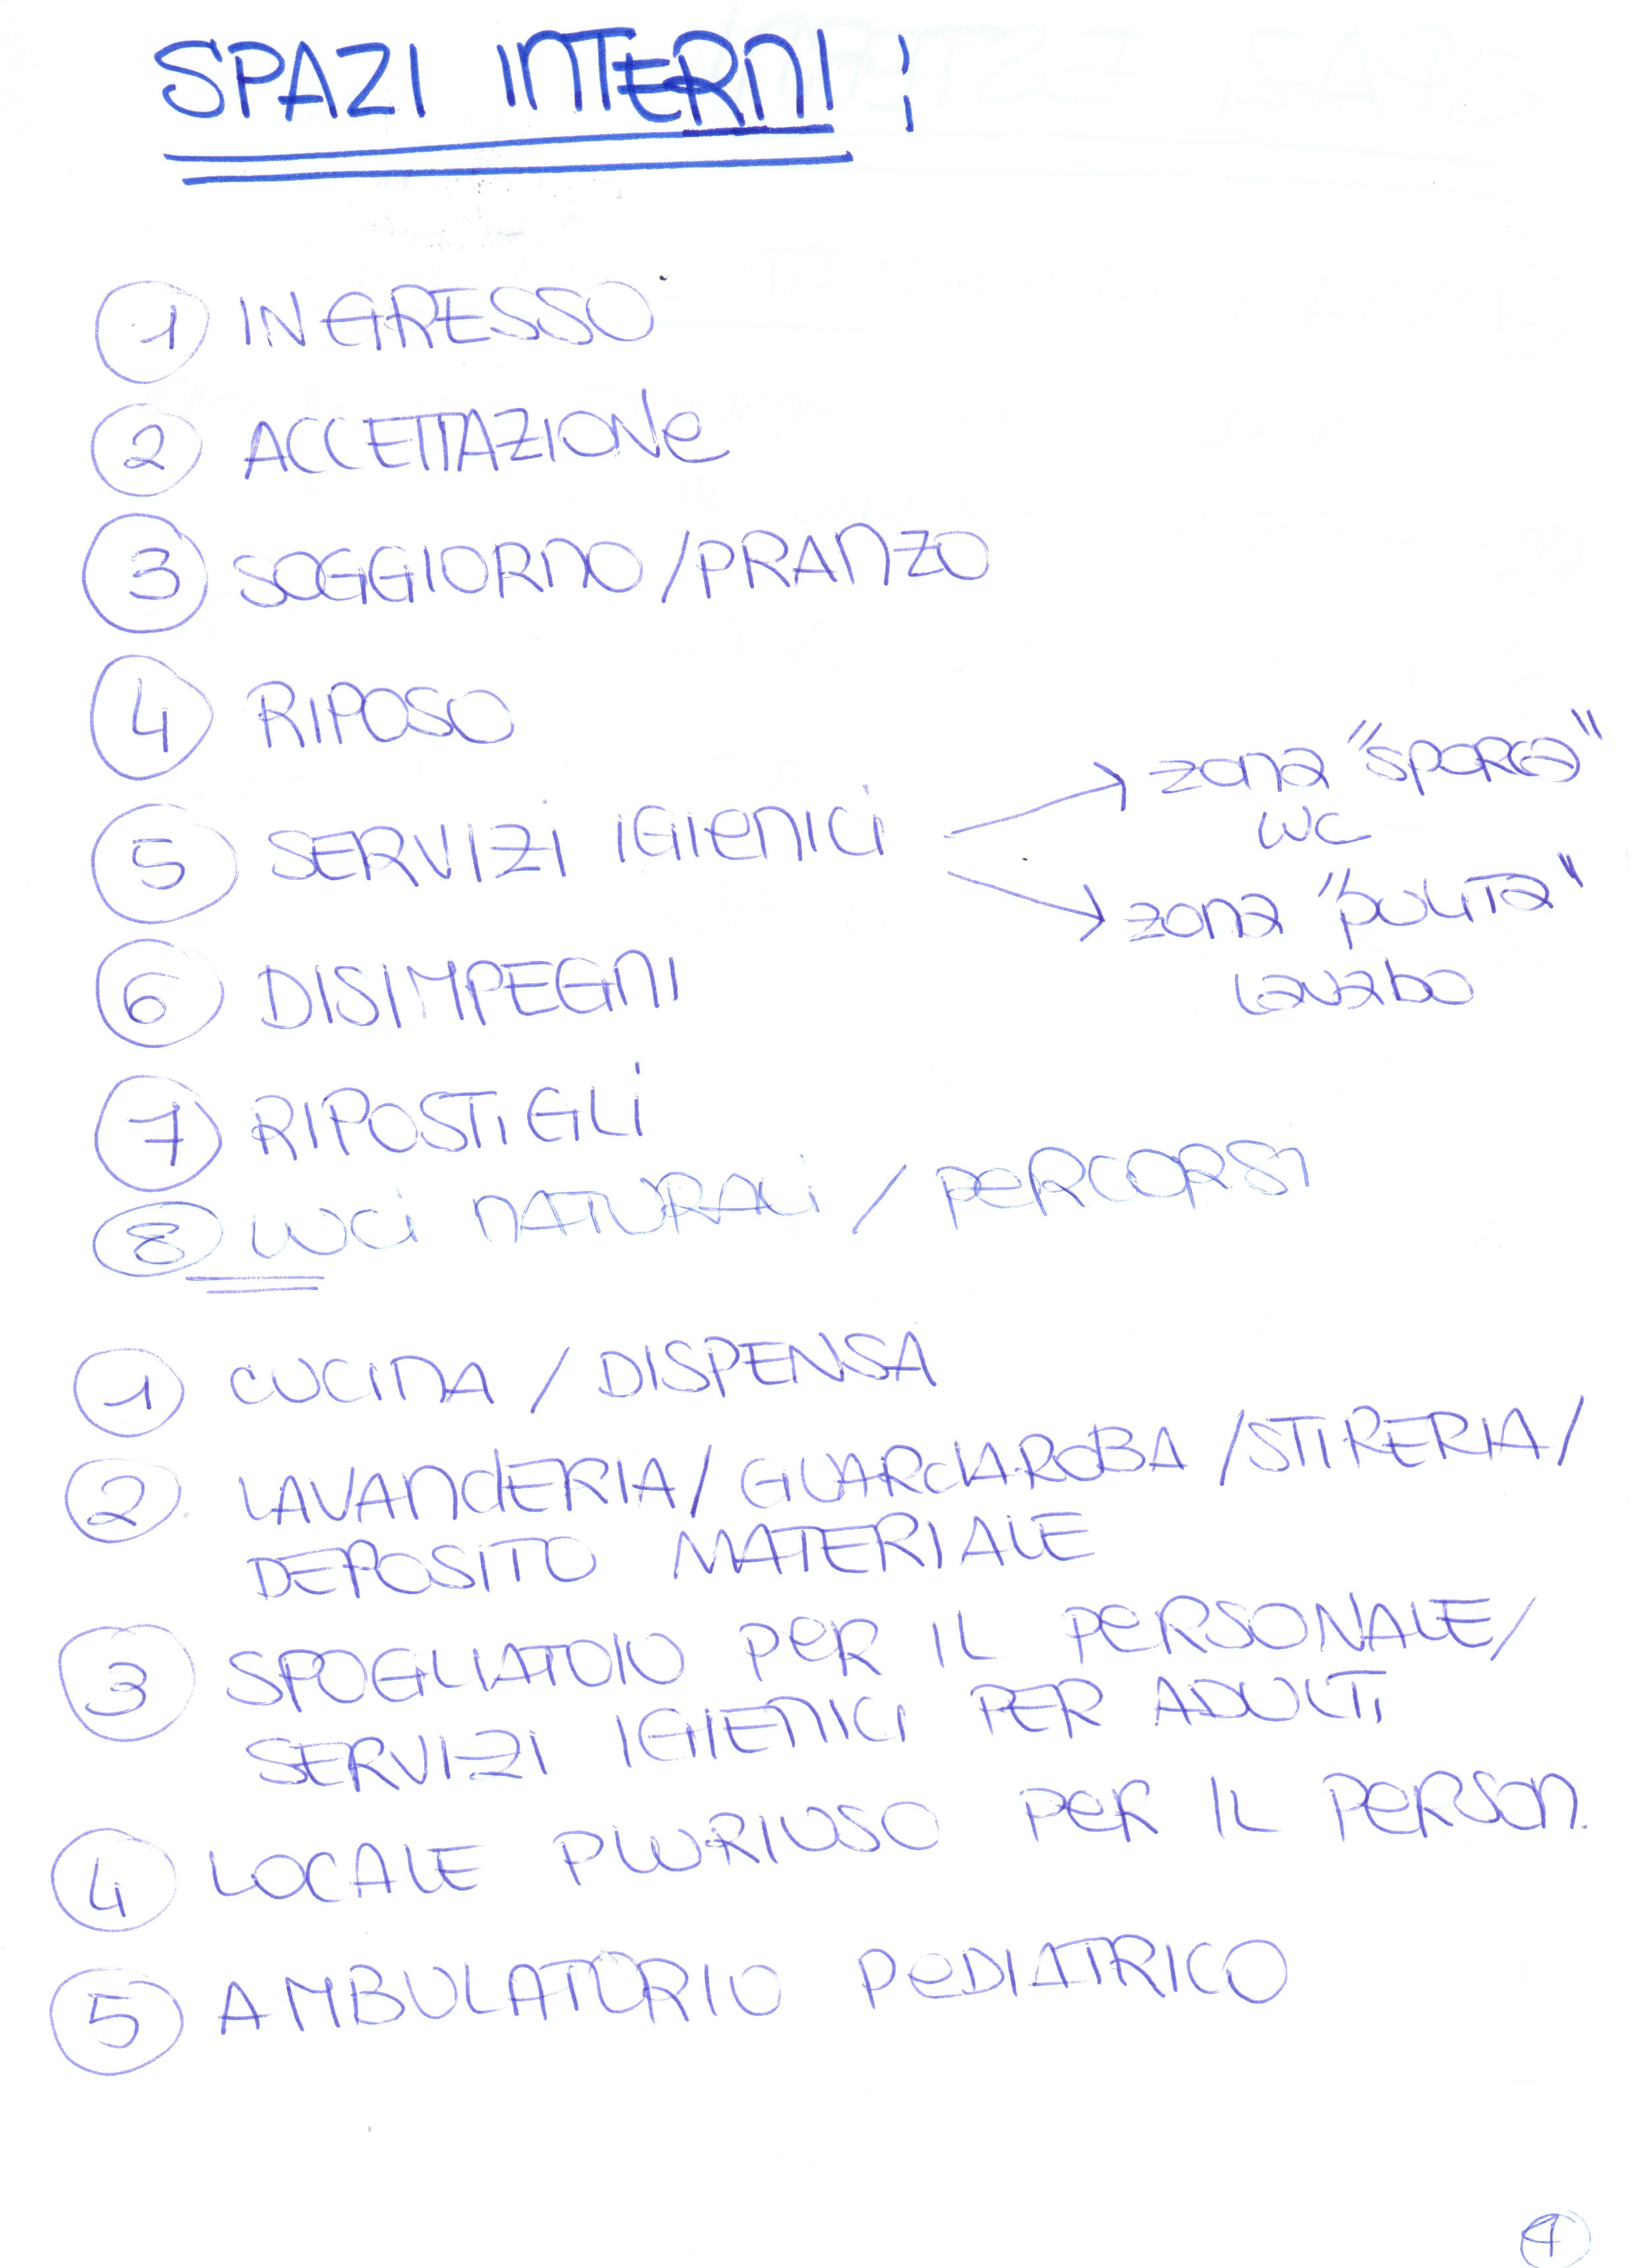 SPAZI INTERNI :
1 INGRESSO
2 ACCETTAZIONE
3 SOGGIORNO / PRANZO
4 RIPOSO
5 SERVIZI IGIENICI
→ zona "sporca"
WC
→ zona "pulita"
lavabo
6 DISIMPEGNI
7 RIPOSTIGLI
8 LUCI NATURALI / PERCORSI
1 CUCINA / DISPENSA
2 LAVANDERIA / GUARDAROBA / STIRERIA /
DEPOSITO MATERIALE
3 SPOGLIATOIO PER IL PERSONALE /
SERVIZI IGIENICI PER ADULTI
4 LOCALE PLURIUSO PER IL PERSON.
5 AMBULATORIO PEDIATRICO